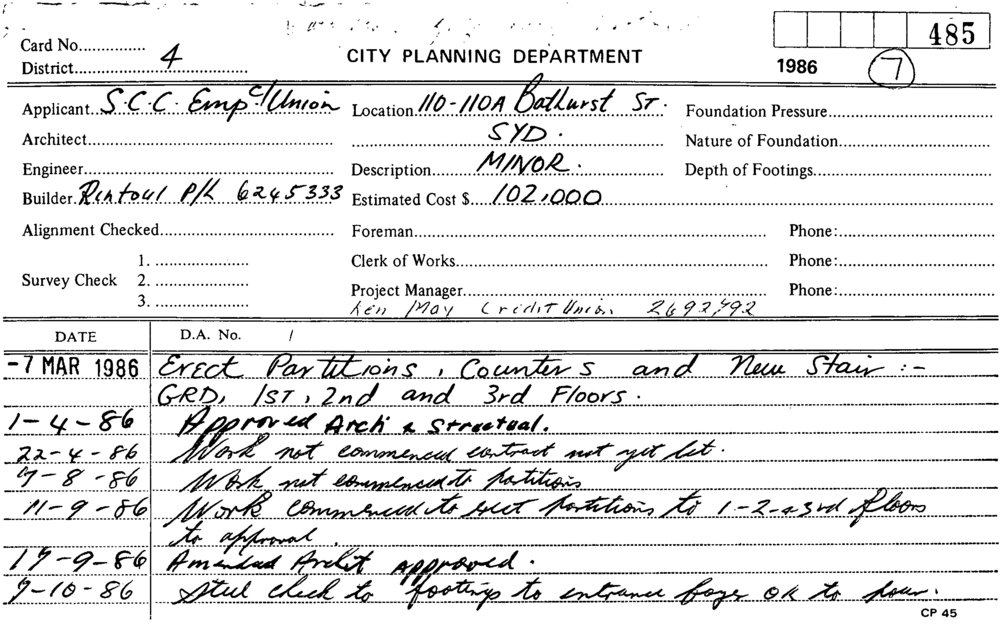 485
Card No..............
District.......... 4 ..........
CITY PLANNING DEPARTMENT
1986 7
Applicant S.C.C. Emp c/Union Location 110-110A Bathurst ST. Foundation Pressure..........
Architect.......... SYD. Nature of Foundation..........
Engineer.......... Description MINOR. Depth of Footings..........
Builder Rintoul P/L 6245333 Estimated Cost $ 102,000
Alignment Checked.......... Foreman.......... Phone:..........
1. .......... Clerk of Works.......... Phone:..........
Survey Check 2. ..........
3. .......... Project Manager.......... Phone:..........
Ken May Credit Union 2692792
DATE D.A. No. /
-7 MAR 1986 Erect Partitions, Counters and New Stair :-
GRD, 1ST, 2nd and 3rd Floors.
1-4-86 Approved Arch & Structual.
22-4-86 Work not commenced contract not yet let.
7-8-86 Work not commenced to partitions
11-9-86 Work commenced to erect partitions to 1-2-&3rd floors
to approval.
17-9-86 Amended Archit approved.
9-10-86 Steel check to footings to entrance foyer OK to pour.
CP 45